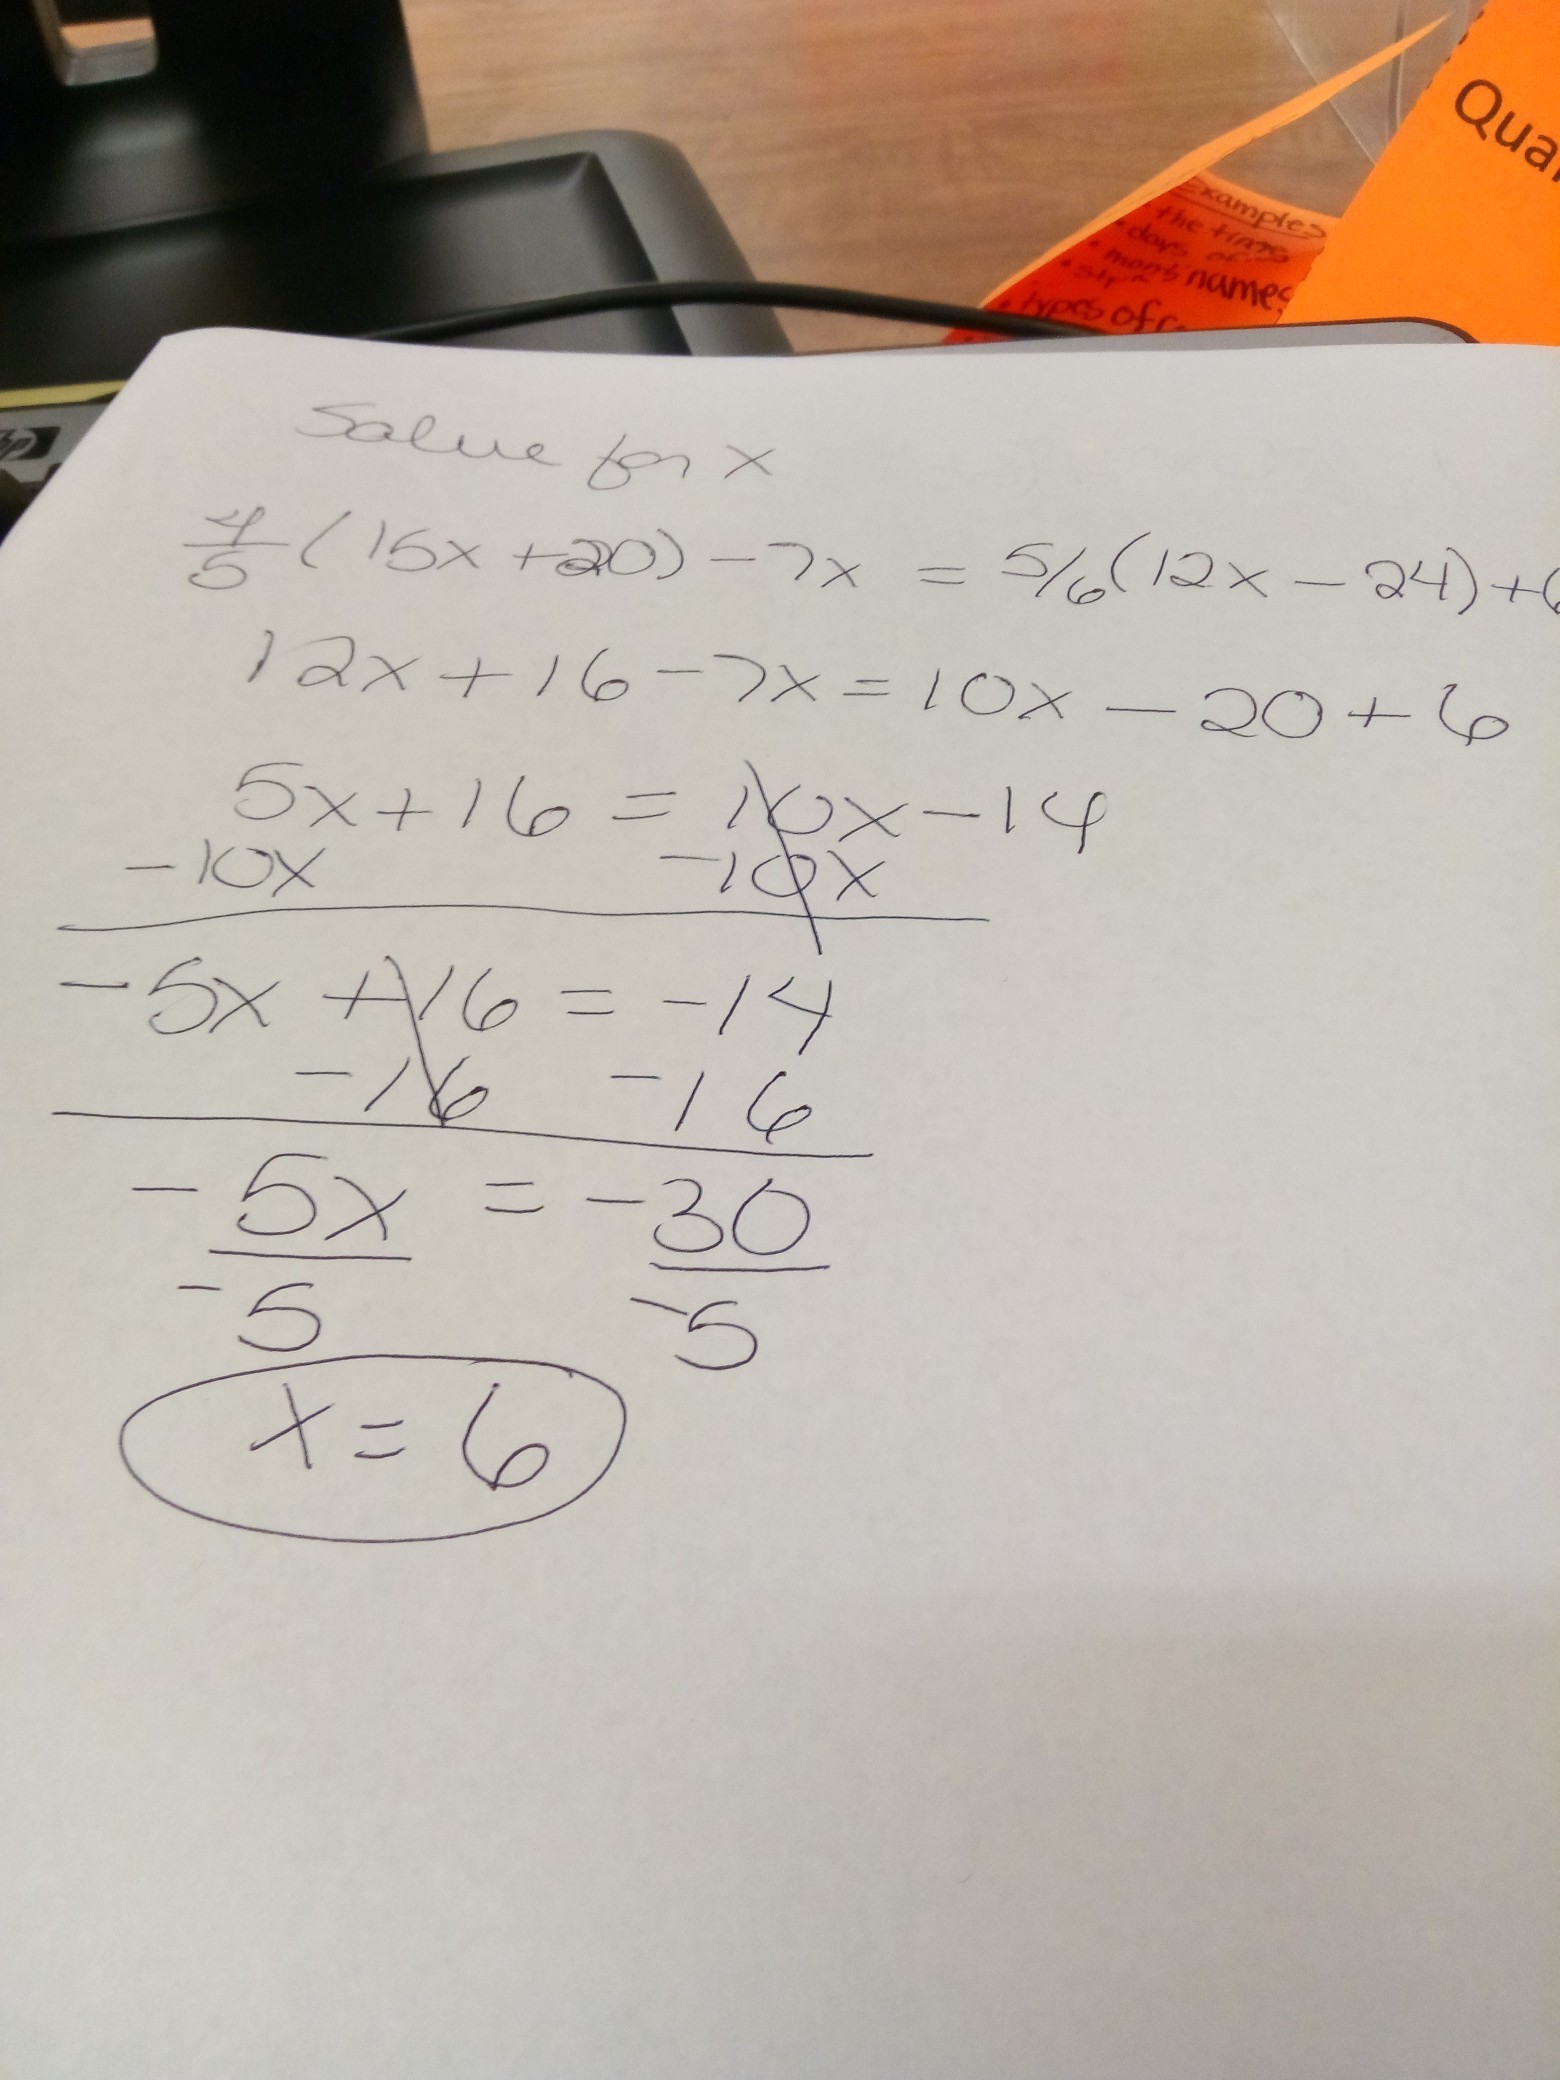 Qua
Examples
the time
• days of
names
• types of
hp
Solve for x
4/5 (15x + 20) - 7x = 5/6 (12x - 24) + 6
12x + 16 - 7x = 10x - 20 + 6
5x + 16 = 10x - 14
-10x -10x
-5x + 16 = -14
-16 -16
-5x = -30
-5 -5
x = 6